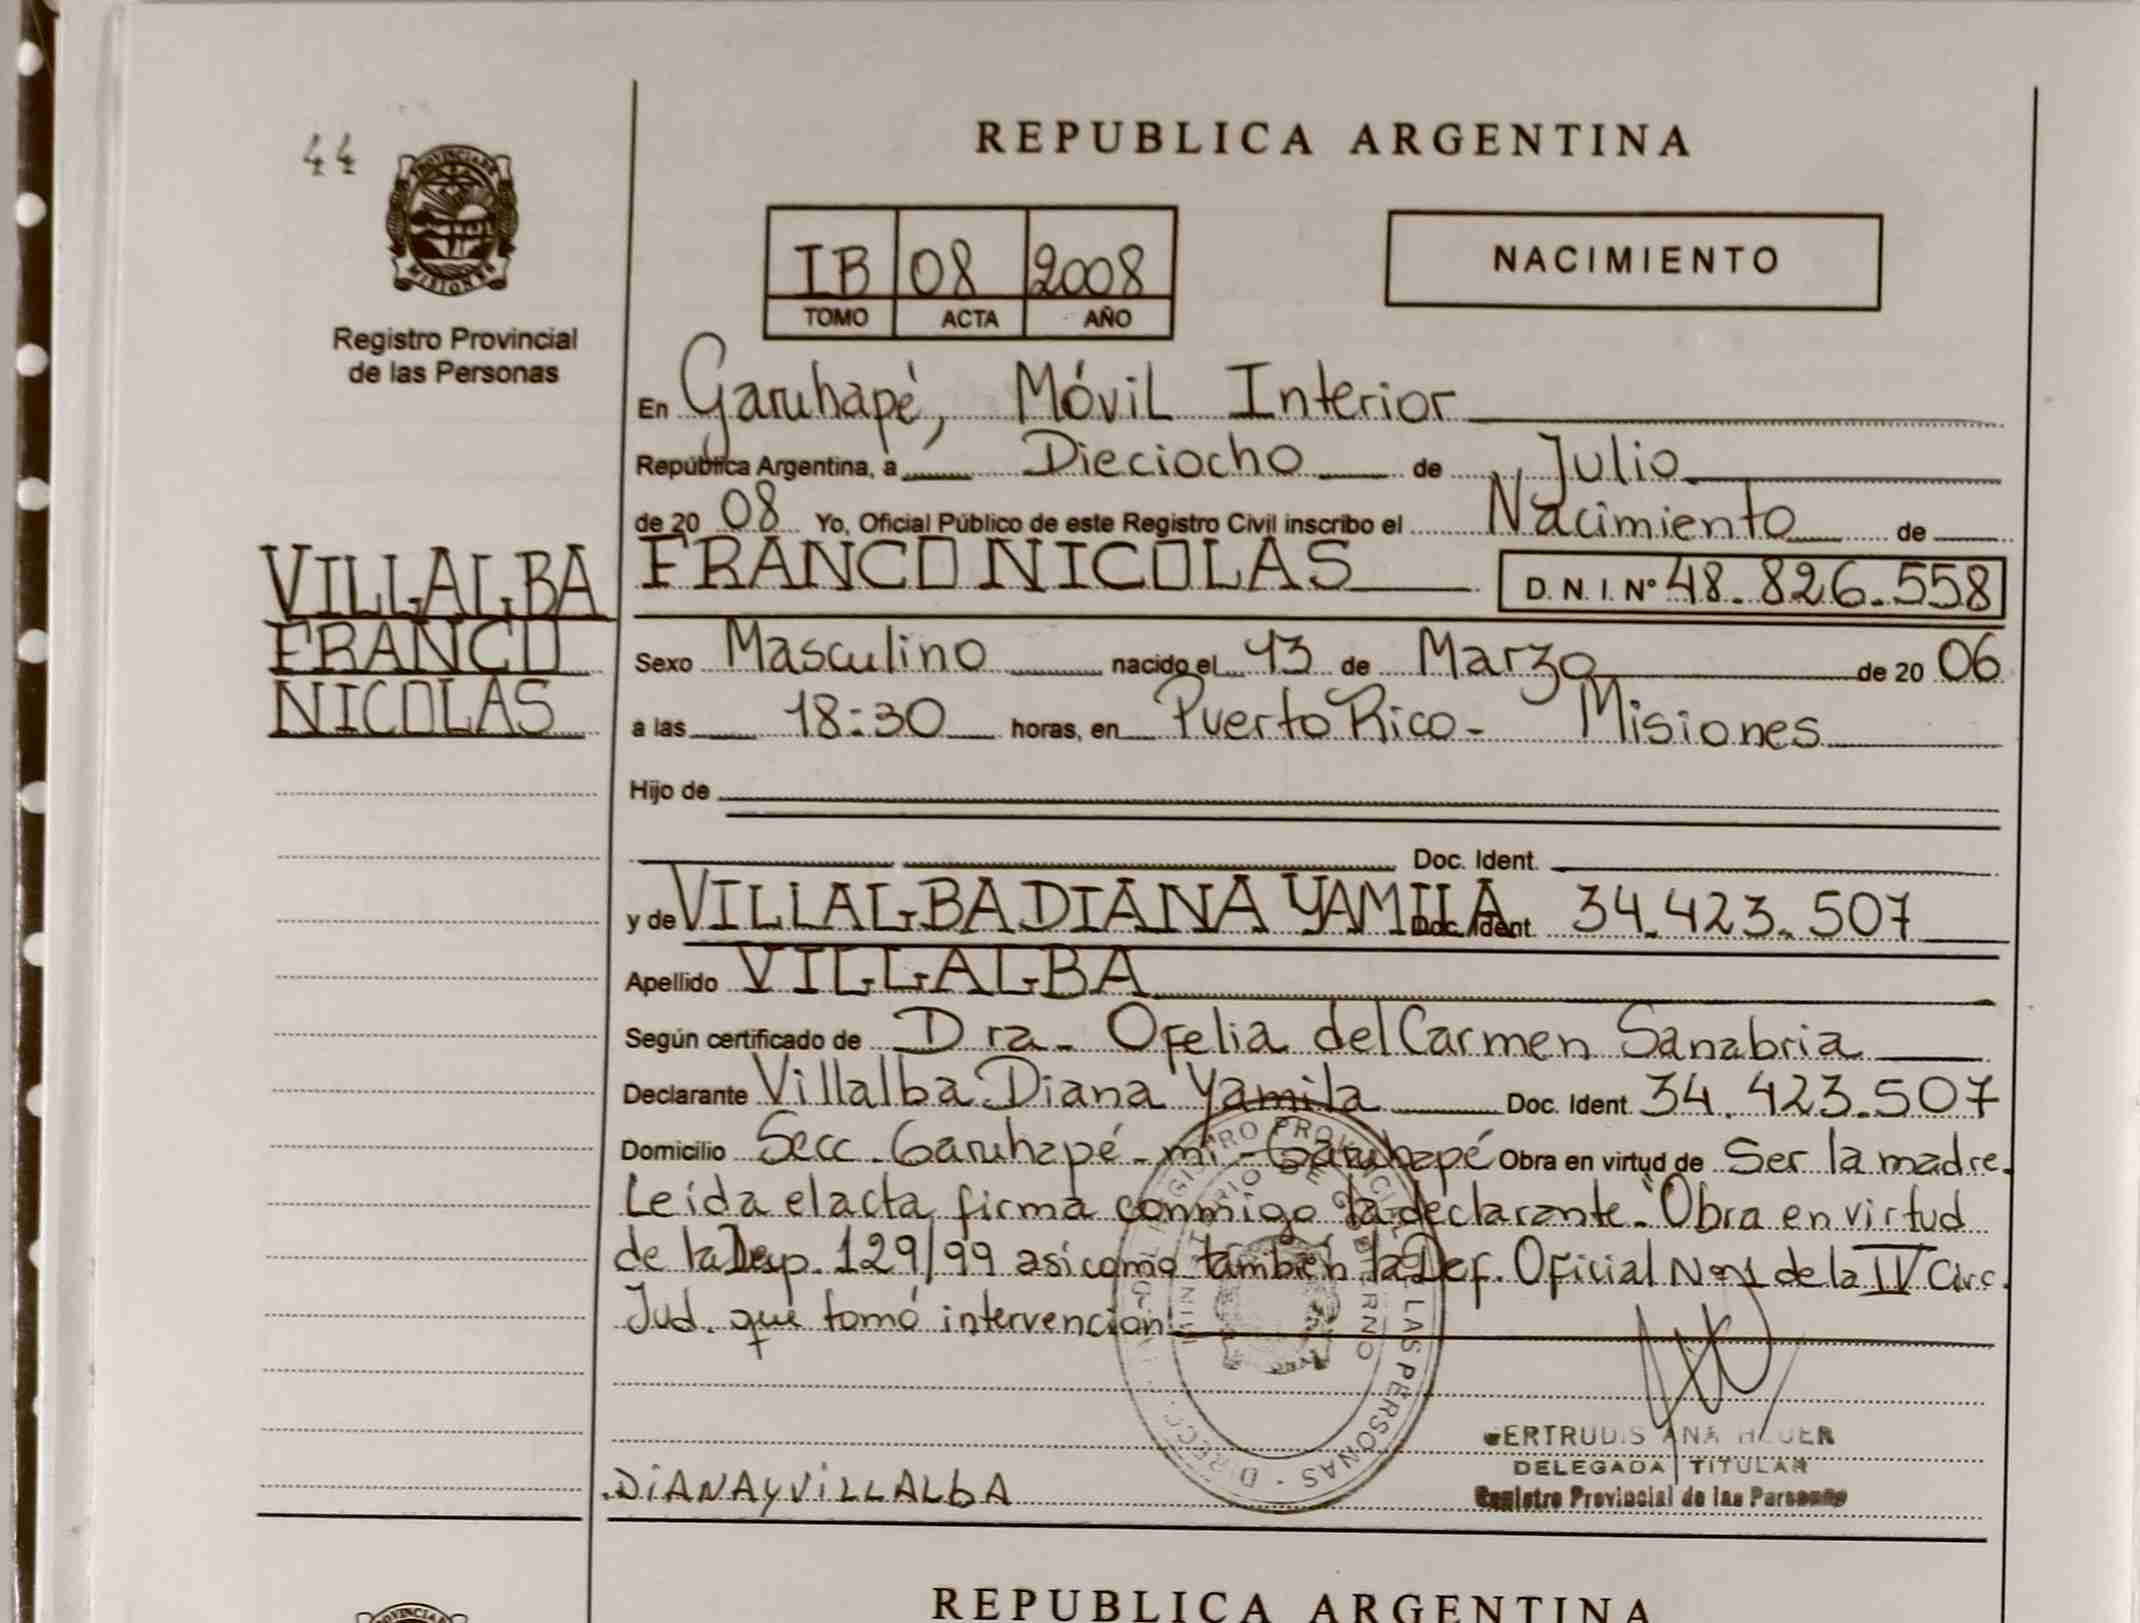 44
PROVINCIA DE
MISIONES
Registro Provincial
de las Personas
REPUBLICA ARGENTINA
IB 08 2008
TOMO ACTA AÑO
NACIMIENTO
En Garuhapé, Móvil Interior
República Argentina, a Dieciocho de Julio
de 20 08 Yo, Oficial Público de este Registro Civil inscribo el Nacimiento de
VILLALBA
FRANCO
NICOLAS
FRANCO NICOLAS D. N. I. Nº 48.826.558
Sexo Masculino nacido el 13 de Marzo de 20 06
a las 18:30 horas, en Puerto Rico - Misiones
Hijo de
Doc. Ident.
y de VILLALBA DIANA YAMILA Doc. Ident. 34.423.507
Apellido VILLALBA
Según certificado de Dra. Ofelia del Carmen Sanabria
Declarante Villalba Diana Yamila Doc. Ident. 34.423.507
Domicilio Secc. Garuhapé-mi-Garuhapé Obra en virtud de Ser la madre.
Leida el acta firma conmigo la declarante. Obra en virtud
de la Disp. 129/99 así como también la Def. Oficial Nº1 de la IV Circ.
Jud. que tomó intervención.
REGISTRO PROVINCIAL DE LAS PERSONAS
GERTRUDIS ANA
DELEGADA TITULAR
Registro Provincial de las Personas
DiANA y ViLLALbA
PROVINCIA
REPUBLICA ARGENTINA